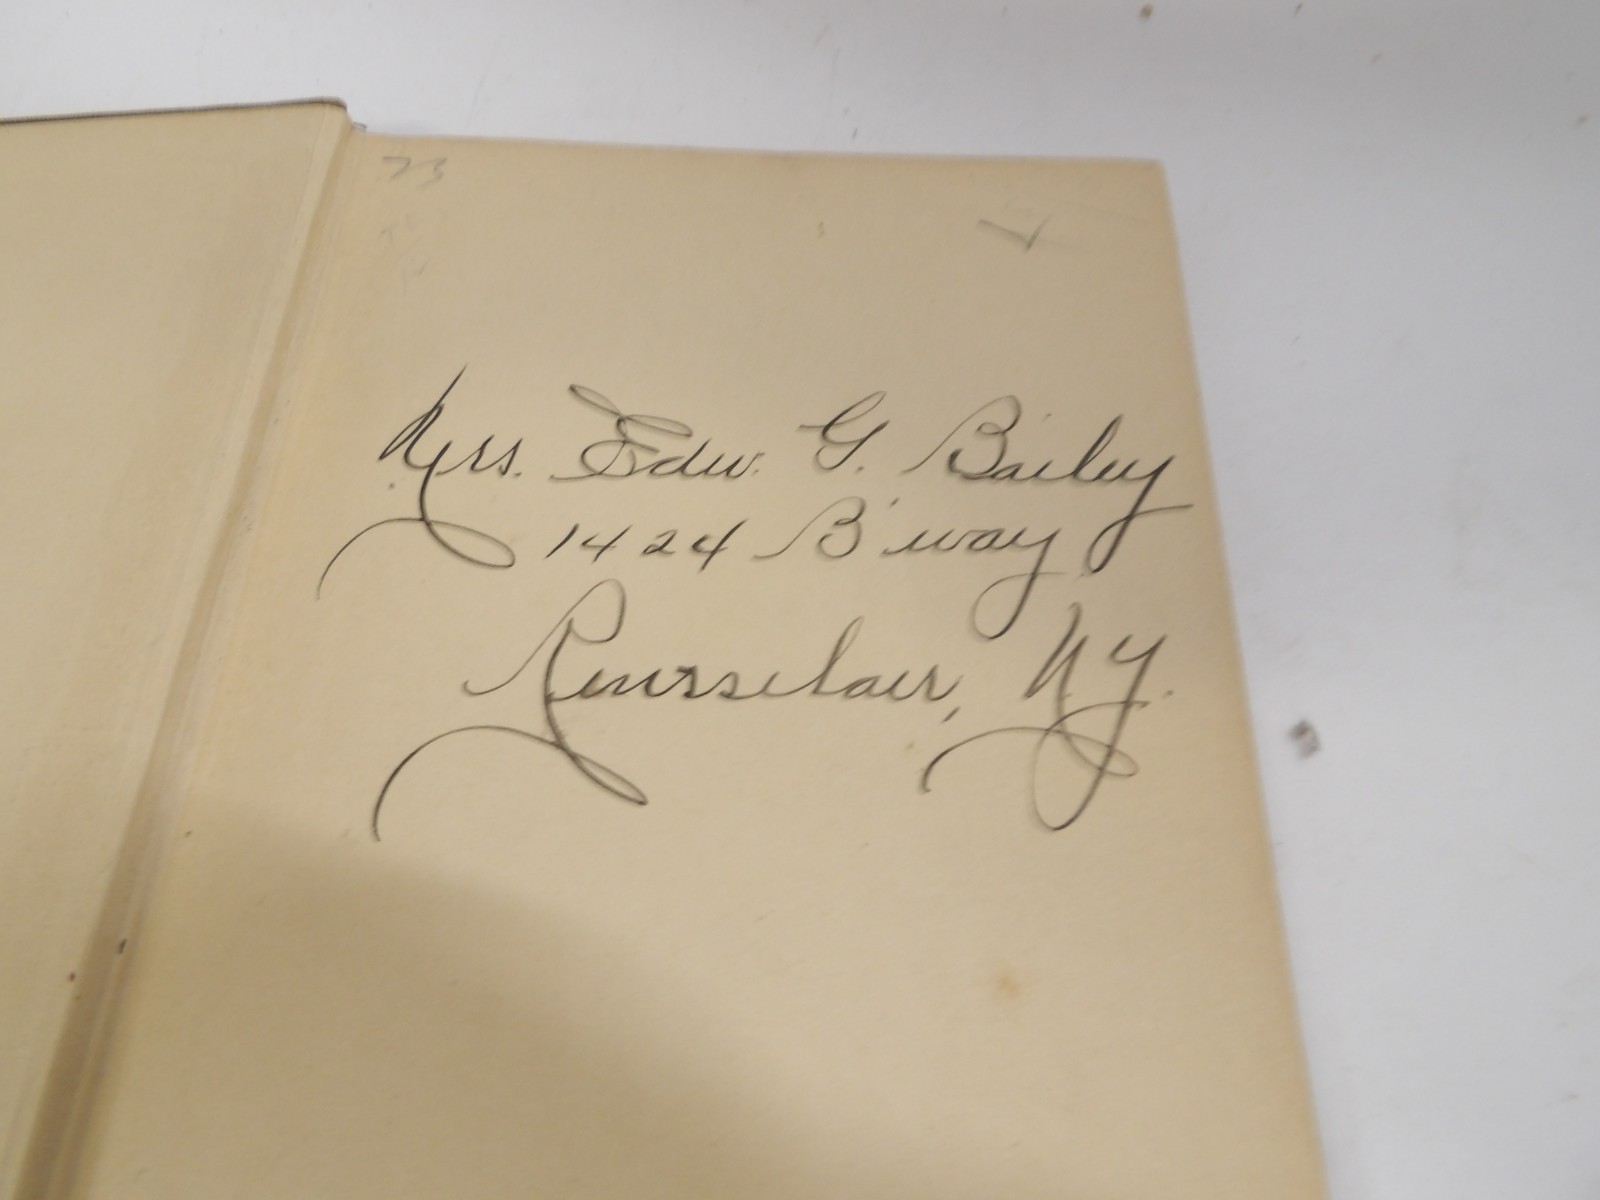 73
Mrs. Edw. G. Bailey
1424 B'way
Rensselaer, N.Y.